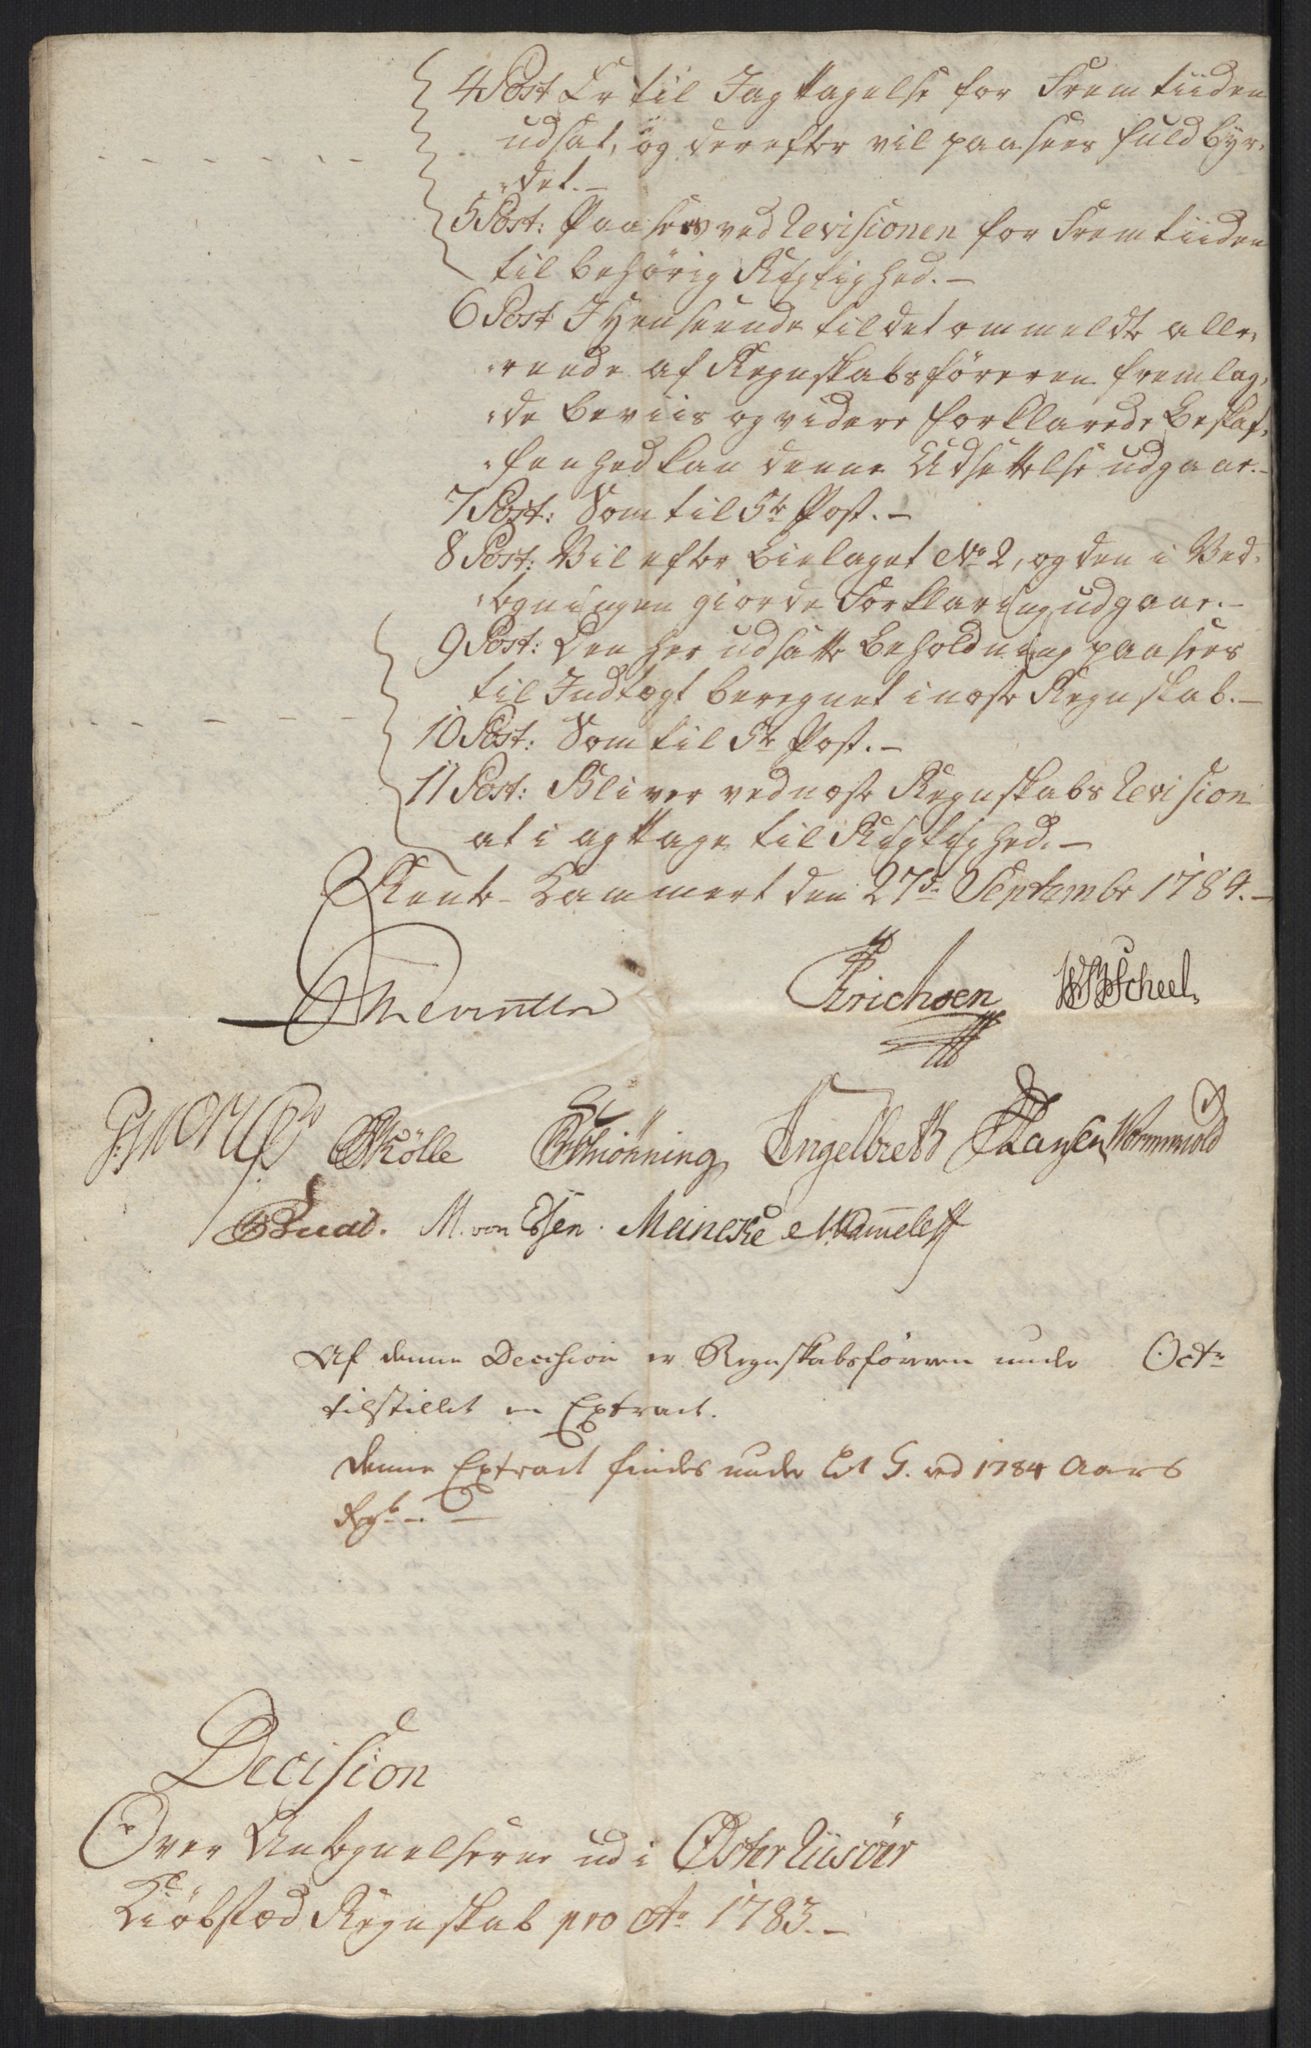 4 Post Er til Jagttagelse for Fremtiiden
udsat, og derefter vil paasees fuldbyr,
„det.-
5 Post: Paasees ved Revisionen for Fremtiiden
til behörig Rigtighed.-
6 Post I Henseende til det ommeldte alle„
„reede af Regnskabsföreren fremlag„
„de Beviis og videre forklarede Beskaf„
„fenhed kan denne Udsettelse udgaae.-
7 Post: Som til 5te Post.-
8 Post: Vil efter Bielaget No 2, og den i Ved„
„tegningen giorde Forklaring udgaae.-
9 Post: Den her udsatte Beholdning paasees
til Indtægt beregnet i næste Regnskab.-
10 Post: Som til 5te Post.-
11 Post: Bliver ved næste Regnskabs Revision
at iagttage til Rigtighed.-
Rente-Cammeret den 27de Septembr 1784.-
Erichsen Scheel,
Kölle Schiönning Engelbreth Hansen Wormwold
M. von Essen. Meincke Hammeleff
Af denne Decision er Regnskabsföreren under Octr
tilstillet en Extract.
denne Extract findes under Lit G. ved 1784 Aars
Rgb.-
Decision
Over Antegnelserne udi Öster Riisöer
Kiöbstæd Regnskab pro Ao 1783.-